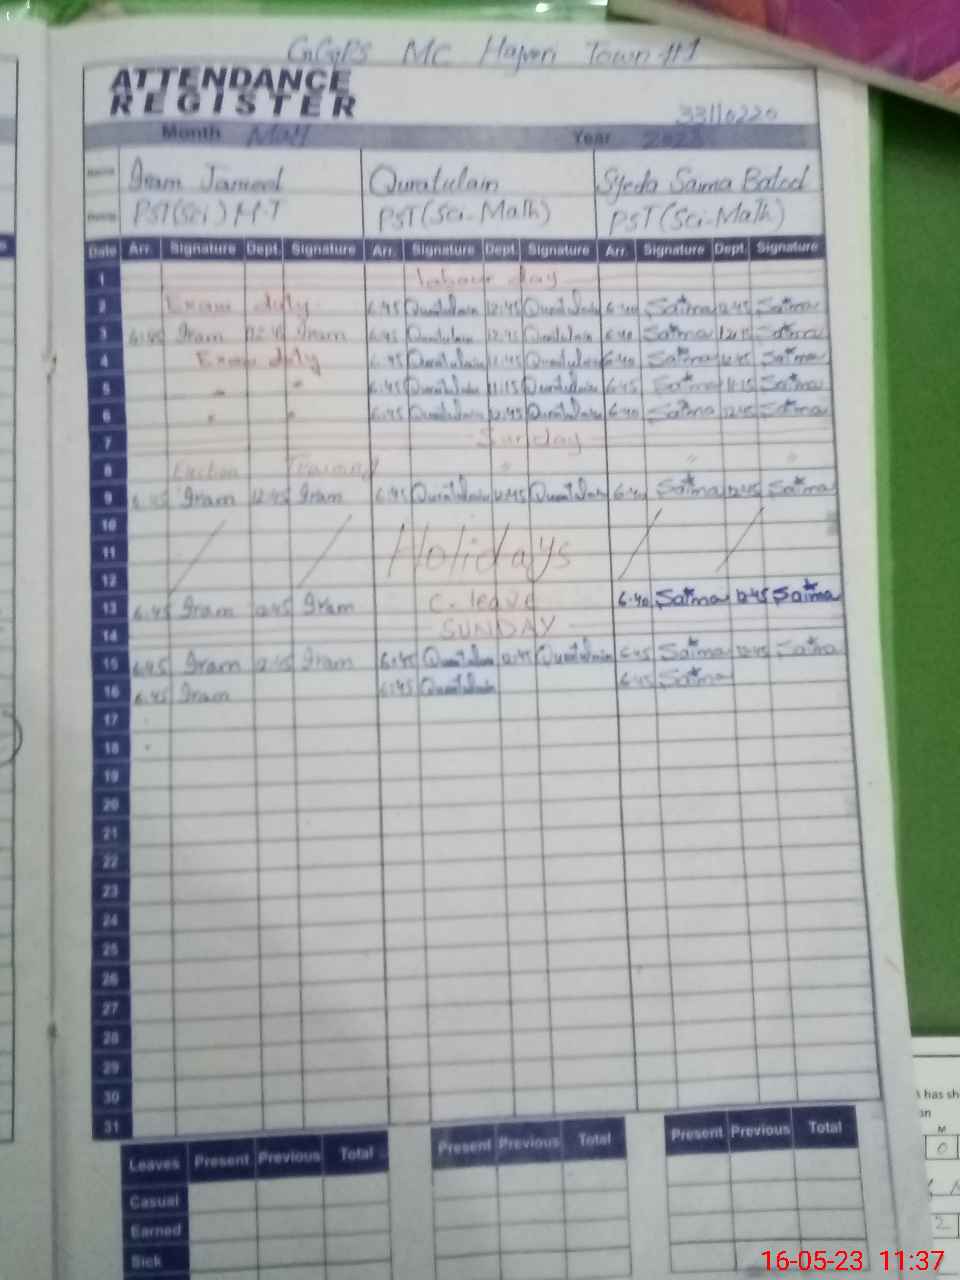 GGPS MC Hajveri Town #1
ATTENDANCE
REGISTER
33110220
Month May Year 2023
Name Iram Jameel Quratulain Syeda Saima Batool
PST(Sci) M.T PST(Sci-Math) PST(Sci-Math)
Date Arr. Signature Dept. Signature Arr. Signature Dept. Signature Arr. Signature Dept. Signature
1 Labour day
2 Exam duty 6:45 Quratulain 12:45 Quratulain 6:40 Saima 12:45 Saima
3 6:45 Iram 12:45 Iram 6:45 Quratulain 12:45 Quratulain 6:40 Saima 12:45 Saima
4 Exam duty 6:45 Quratulain 11:45 Quratulain 6:40 Saima Saima
5 " " 6:45 Quratulain 11:15 Quratulain 6:45 Saima 11:15 Saima
6 " " 6:45 Quratulain 12:45 Quratulain 6:40 Saima 12:45 Saima
7 Sunday
8 Election Training " " "
9 6:45 Iram 12:45 Iram 6:45 Quratulain 12:45 Quratulain 6:40 Saima 12:45 Saima
10
11 Holidays
12
13 6:45 Iram 12:45 Iram C. leave 6:40 Saima 12:45 Saima
14 SUNDAY
15 6:45 Iram 12:45 Iram 6:45 Quratulain 12:45 Quratulain 6:45 Saima 12:45 Saima
16 6:45 Iram 6:45 Quratulain 6:45 Saima
17
18
19
20
21
22
23
24
25
26
27
28
29
30
31
Leaves Present Previous Total Present Previous Total Present Previous Total
Casual
Earned
Sick
has sh
M
0
2
16-05-23 11:37